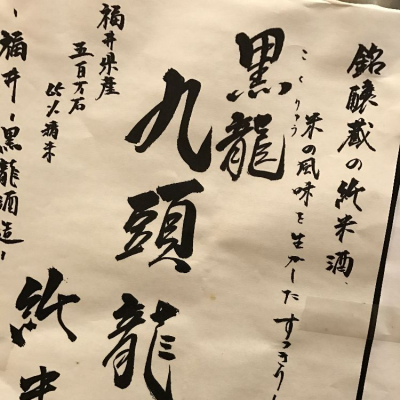 銘醸蔵の純米酒
米の風味を生かしたすっきり
こくりゅう
黒龍
九頭龍
純米
福井県産
五百万石
65%精米
-福井-黒龍酒造-